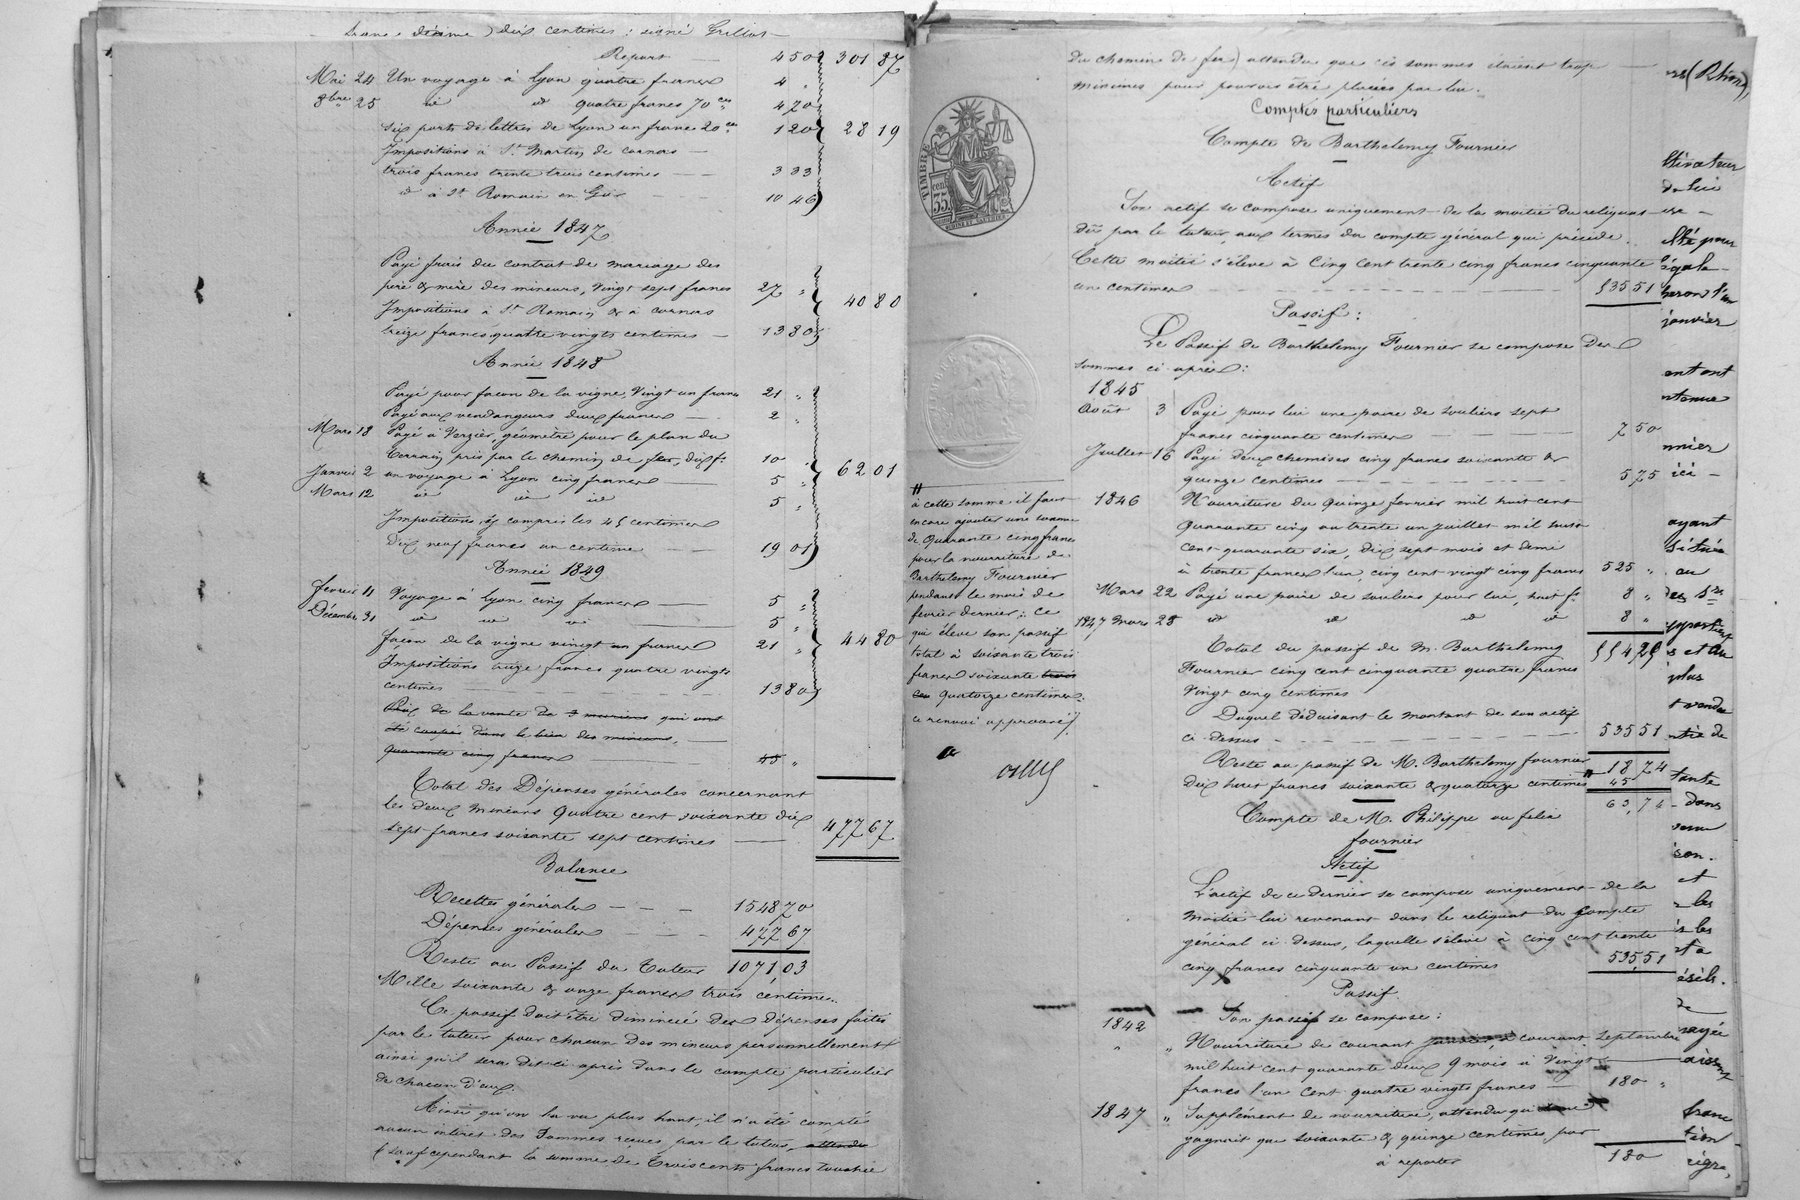 dix centimes : signé Grillot
Report 450 301 87
Mai 24 Un voyage à Lyon quatre francs 4 "
8bre 25 id id quatre francs 70 ces 4 70
Six ports de lettres de Lyon un franc 20 ces 1 20 28 19
Impositions à St Martin de cornas
trois francs trente trois centimes 3 33
d° à St Romain en Gier 10 46
Année 1847
Payé frais du contrat de mariage des
père & mère des mineurs, vingt sept francs 27 " 40 80
Impositions à St Romain & à cornas
treize francs quatre vingts centimes 13 80
Année 1848
Payé pour façon de la vigne, Vingt un francs 21 "
Payé aux vendangeurs deux francs 2 "
Mars 18 Payé à Verzier, géomètre pour le plan du
terrain pris par le chemin de fer, dix f. 10 62 01
Janvier 2 un voyage à Lyon cinq francs 5 "
Mars 12 id id id 5 "
Impositions, y compris les 45 centimes
Dix neuf francs un centime 19 01
Année 1849
février 11 Voyage à Lyon cinq francs 5 "
Décembre 31 id id id 5 "
façon de la vigne vingt un francs 21 " 44 80
Impositions treize francs quatre vingts
centimes 13 80
Prix de la vente de 3 muriers qui ont
été coupés dans le bien des mineurs,
quarante cinq francs 45 "
Total des Dépenses générales concernant
les deux mineurs Quatre cent soixante dix
sept francs soixante sept centimes 477 67
Balance
Recettes générales 1548 70
Dépenses générales 477 67
Reste au Passif du Tuteur 1071 03
Mille soixante & onze francs trois centimes.
Ce passif doit être diminué des dépenses faites
par le tuteur pour chacun des mineurs personnellement
ainsi qu'il sera dit ci après dans le compte particulier
de chacun d'eux.
Ainsi qu'on l'a vu plus haut, il n'a été compté
aucun intérêt des Sommes reçues par le tuteur, attendu
(sauf cependant la somme de Trois cents francs touchée
du chemin de fer) attendu que ces sommes étaient trop
minimes pour pouvoir être placées par lui.
Comptes particuliers
Compte de Barthelemy Fournier
Actif
TIMBRE
35
Son actif se compose uniquement de la moitié du reliquat
dû par le tuteur, aux termes du compte général qui précède.
Cette moitié s'élève à Cinq Cent trente cinq francs cinquante
un centimes 535 51
Passif :
Le Passif de Barthelemy Fournier se compose des
sommes ci après :
1845
Août 3 Payé pour lui une paire de souliers sept
francs cinquante centimes 7 50
Juillet 16 Payé deux chemises cinq francs soixante &
quinze centimes 5 75
1846 Nourriture du Quinze février mil huit cent
quarante cinq au trente un juillet mil huit
cent quarante six, dix sept mois et demi
à trente francs l'un, cinq cent vingt cinq francs 525 "
Mars 22 Payé une paire de souliers pour lui, huit f. 8 "
1847 mars 28 id id id id 8 "
Total du passif de M. Barthelemy 554 25
Fournier cinq cent cinquante quatre francs
Vingt cinq centimes
Duquel déduisant le montant de son actif
ci dessus 535 51
Reste au passif de M. Barthelemy fournier
Dix huit francs soixante & quatorze centimes # 18 74
45
63,74
# à cette somme il faut
encore ajouter une somme
de Quarante cinq francs
pour la nourriture de
Barthelemy Fournier
pendant le mois de
février dernier ; ce
qui élève son passif
total à soixante trois
francs soixante trois
quatorze centimes
ce renvoi approuvé
Compte de M. Philippe ou felix
fournier
Actif
L'actif de ce dernier se compose uniquement de la
moitié lui revenant dans le reliquat du Compte
général ci dessus, laquelle s'élève à cinq cent trente
cinq francs cinquante un centimes 535,51
Passif
Son passif se compose :
1842
" " Nourriture de courant courant septembre
mil huit cent quarante deux 9 mois à Vingt
francs l'un Cent quatre vingts francs 180 "
1847 " Supplément de nourriture, attendu qu'
gagnait que soixante & quinze centimes par
à reporter 180
(Rhône),
janvier
ayant
au
plus
dans
et
les
de